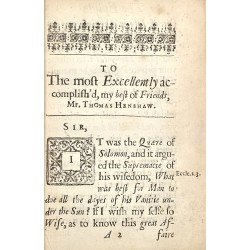 TO
The most Excellently ac-
complish'd, my best of Friends,
Mr. THOMAS HENSHAW.
SIR,
IT was the Quære of
Solomon, and it argu-
ed the Supremacie of
his wisedom, What
was best for Man to
doe all the dayes of his Vanitie un-
der the Sun? If I wish my selfe so
Wise, as to know this great Af-
A 2 faire
Eccle.2.3.